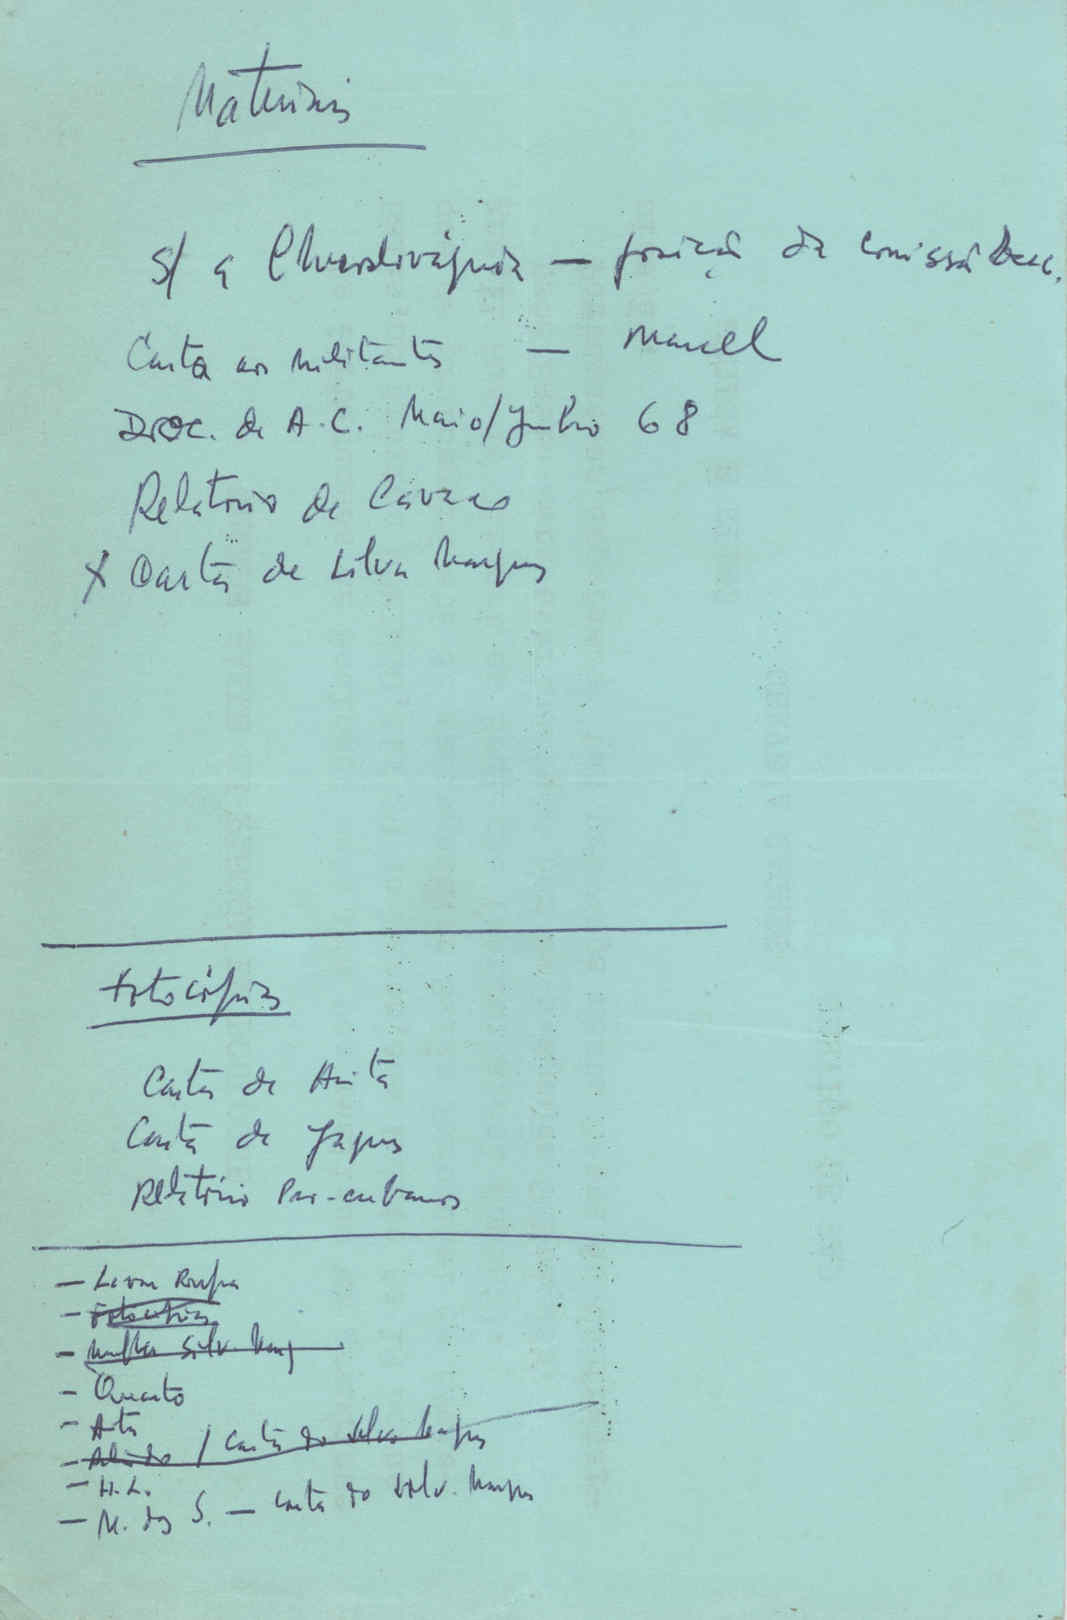 Materiais
S/ a Checoslováquia — posição da Comissão Desc.
Carta aos militantes — Marcel
Doc. de A.C. Maio/Junho 68
Relatório de
X Carta de Silva Marques
Fotocópias
Carta de Anita
Carta de Jaques
Relatório Pro-cubanos
— Levar Roupa
— Fotocópias
— Silv. Marq
— Quarto
— Ata
— / Carta do Silva Marques
— H.L.
— M. dos S. — Carta do Silv. Marques